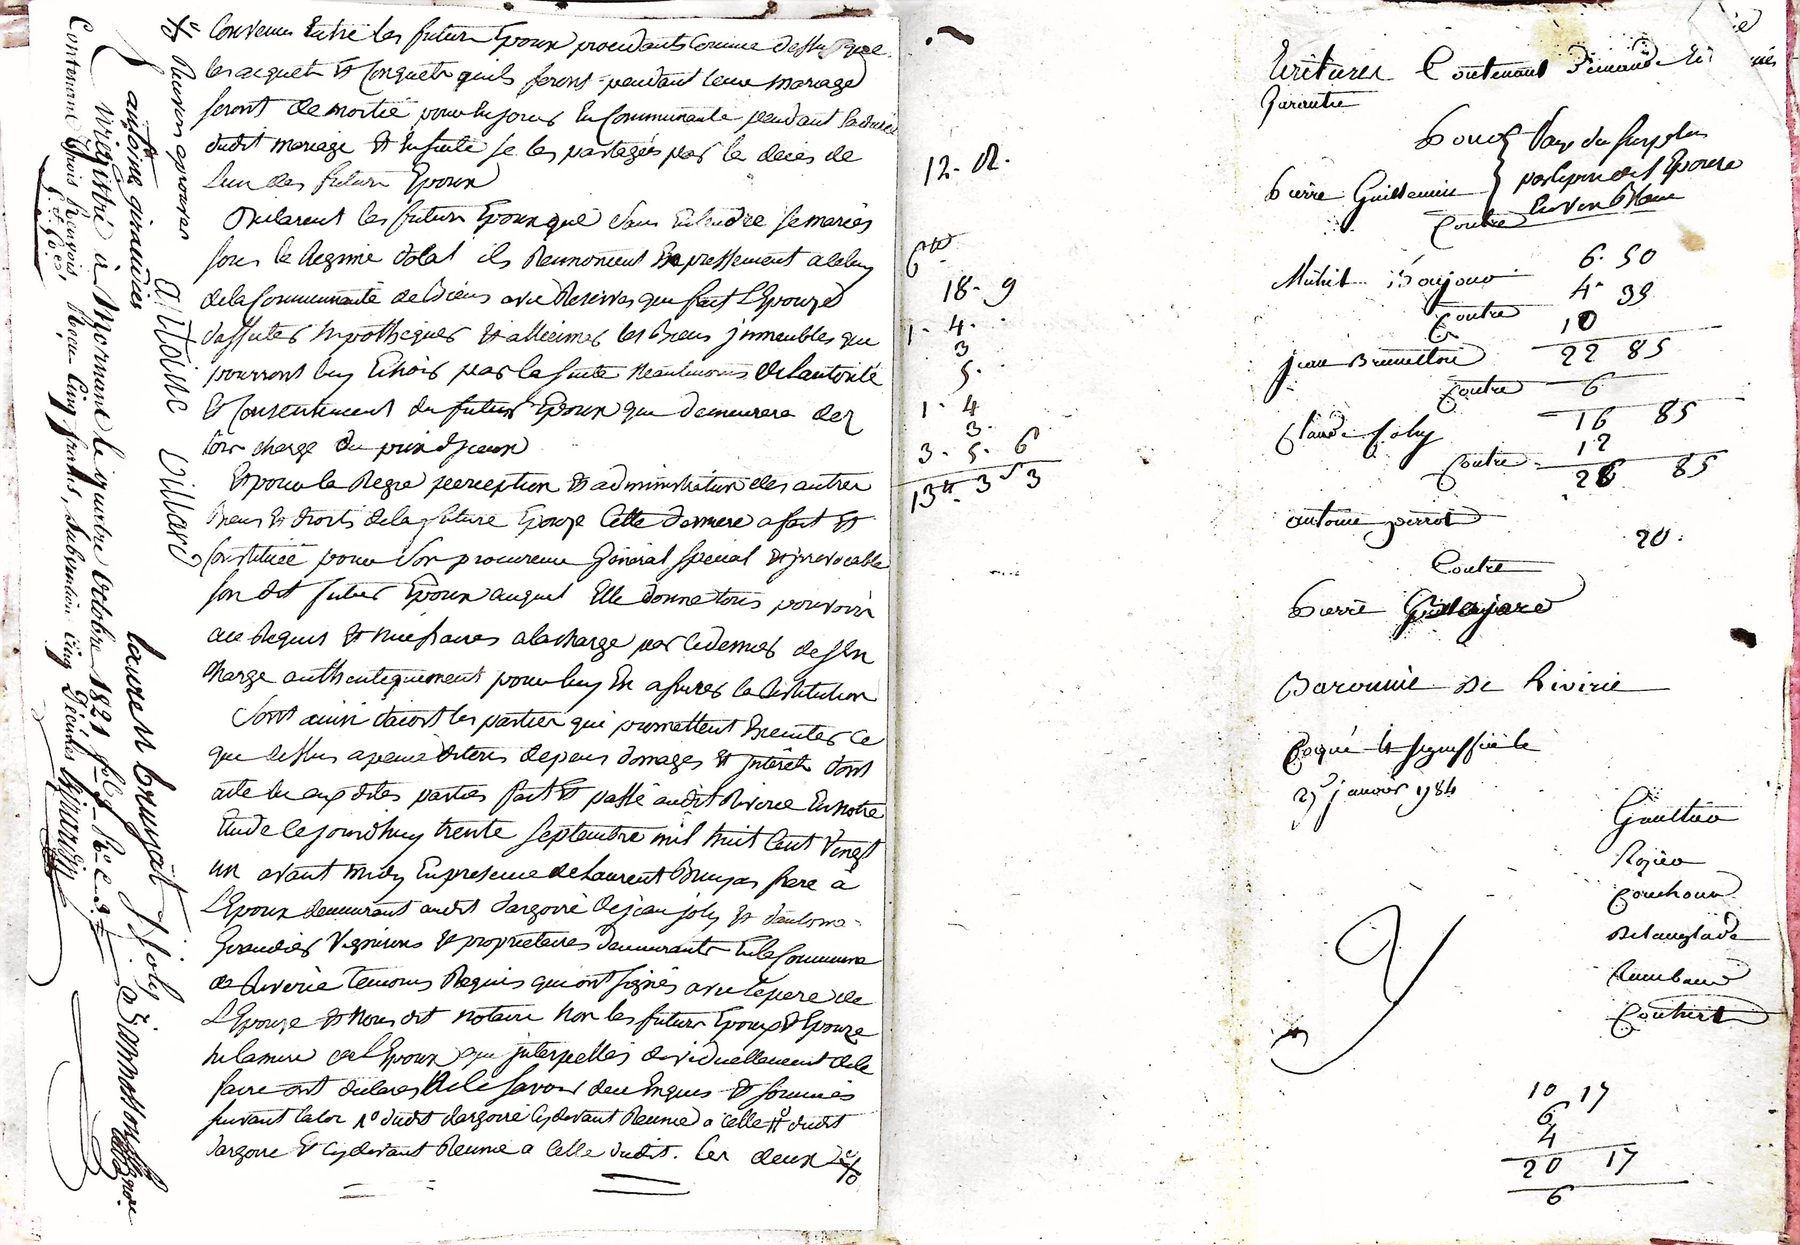 Convenu Entre les futurs Epoux procedants Comme dessus que
les acquets Et Conquets quils feront pendant leur mariage
seront de moitié pour les jouir En Communauté pendant la durée
dudit mariage Et Ensuite se les partager par le deces de
l'un des futurs Epoux
Declarent les futurs Epoux que sans Entendre se marier
sous le Regime dotal ils Renoncent Expressement a celuy
de la Communauté de Biens avec Reserves que fait L'Epouze
daffecter hypothequer Et alliener les Biens jmmeubles qui
pourront luy Echoir par la suite neanmoins de l'autorité
Et Consentement du futur Epoux qui demeurera des
lors chargé du
Et pour la Regie perception Et administration des autres
Biens Et droits de la future Epouze Cette derniere a fait Et
Constitué pour son procureur General special Et jrrevocable
son dit futur Epoux auquel Elle donne tous pouvoirs
ace Requis Et necessaires a la charge par ce dernier de s'En
charge authentiquement pour luy En assurer la Restitution
Sont ainsi daccord les parties qui promettent Executer ce
que dessus a peine de tous depens domages Et jnterets dont
acte lu aux dites parties fait Et passé audit Riverie En notre
Etude Cejourdhuy trente septembre mil huit Cent Vingt
un avant midy En presence de Laurent Brujas frere à
L'Epoux demeurant audit dargoire de jean joly Et dantoine
Giraudier Vignerons Et proprietaires demeurants En la Commune
de Riverie temoins Requis qui ont signés avec le pere de
L'Epouze Et Nous dit notaire Non les futurs Epoux Et Epouze
ni la mere de L'Epoux qui jnterpellés de le
faire ont declarés Ne le savoir de ce Enquis Et sommés
suivant la loi 1° dudit dargoire cy devant Reunie a Celle dudit
dargoire Et cy devant Reunie a Celle dudit. Les deux
Renvoi aprouvés
antoine giraudier
antoine Villard
lauren brujat
J Joly
Enregistré à Mornant le quatre Octobre 1821
Contenant trois Renvois, Reçu Cinq francs, Subvention cinq Décimes
12. 12.
6
18. 9
1. 4.
3
5.
1. 4
3.
3. 5. 6
13 3 3
Ecritures Contenant Demande En
Garantie
Pour
Pierre Guillermin
Contre
Michel Boujour
Contre
jean Brunetton
Contre
Claude Joly
Contre
antoine perrot
Contre
Pierre
6. 50
4. 35
10
22 85
6
16 85
12
28 85
20.
Baronnie De Riverie
Coqué Et signiffié le
27 janvier 1784
Gaultier
Rozier
Couchoud
Delanglade
Rambaud
Couhert
10 17
6
4
20 17
6